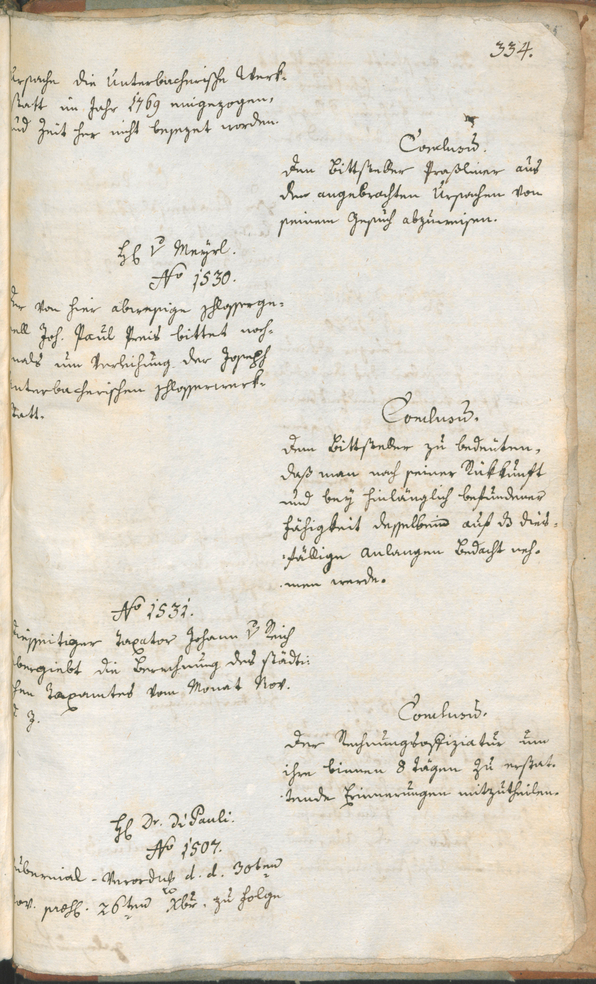 334.
Ursache die Unterbacherische Werk-
statt im Jahr 1769 eingezogen,
und Zeit her nicht besezet worden.
Conclusũ.
dem Bittsteller Praßliner aus
den angebrachten Ursachen von
seinem Gesuch abzuweisen.
H v Meyrl.
No 1530.
der von hier abweesige schlosserge-
sell Joh. Paul Preis bittet noch-
mals um Verleihung der Joseph
unterbacherischen schlosserwerk-
statt.
Conclusũ.
dem Bittsteller zu bedeuten,
daß man nach seiner Rükkunft
und bey hinlänglich befundener
Fähigkeit desselben auf dies-
fällige Anlangen Bedacht neh-
men werde.
No 1531.
diesseitiger Taxator Johann v Reich
übergiebt die Berechnung des städti-
schen Taxamtes vom Monat Nov.
Conclusũ.
Der Rechnungsoffiziatur um
ihre binnen 8 Tägen zu erstat-
tende Erinnerungen mitzutheilen.
H Dr. Di Pauli.
No 1507.
Gubernial-Verordng d. d. 30ten
Nov. 26ten Xbr. zu folge